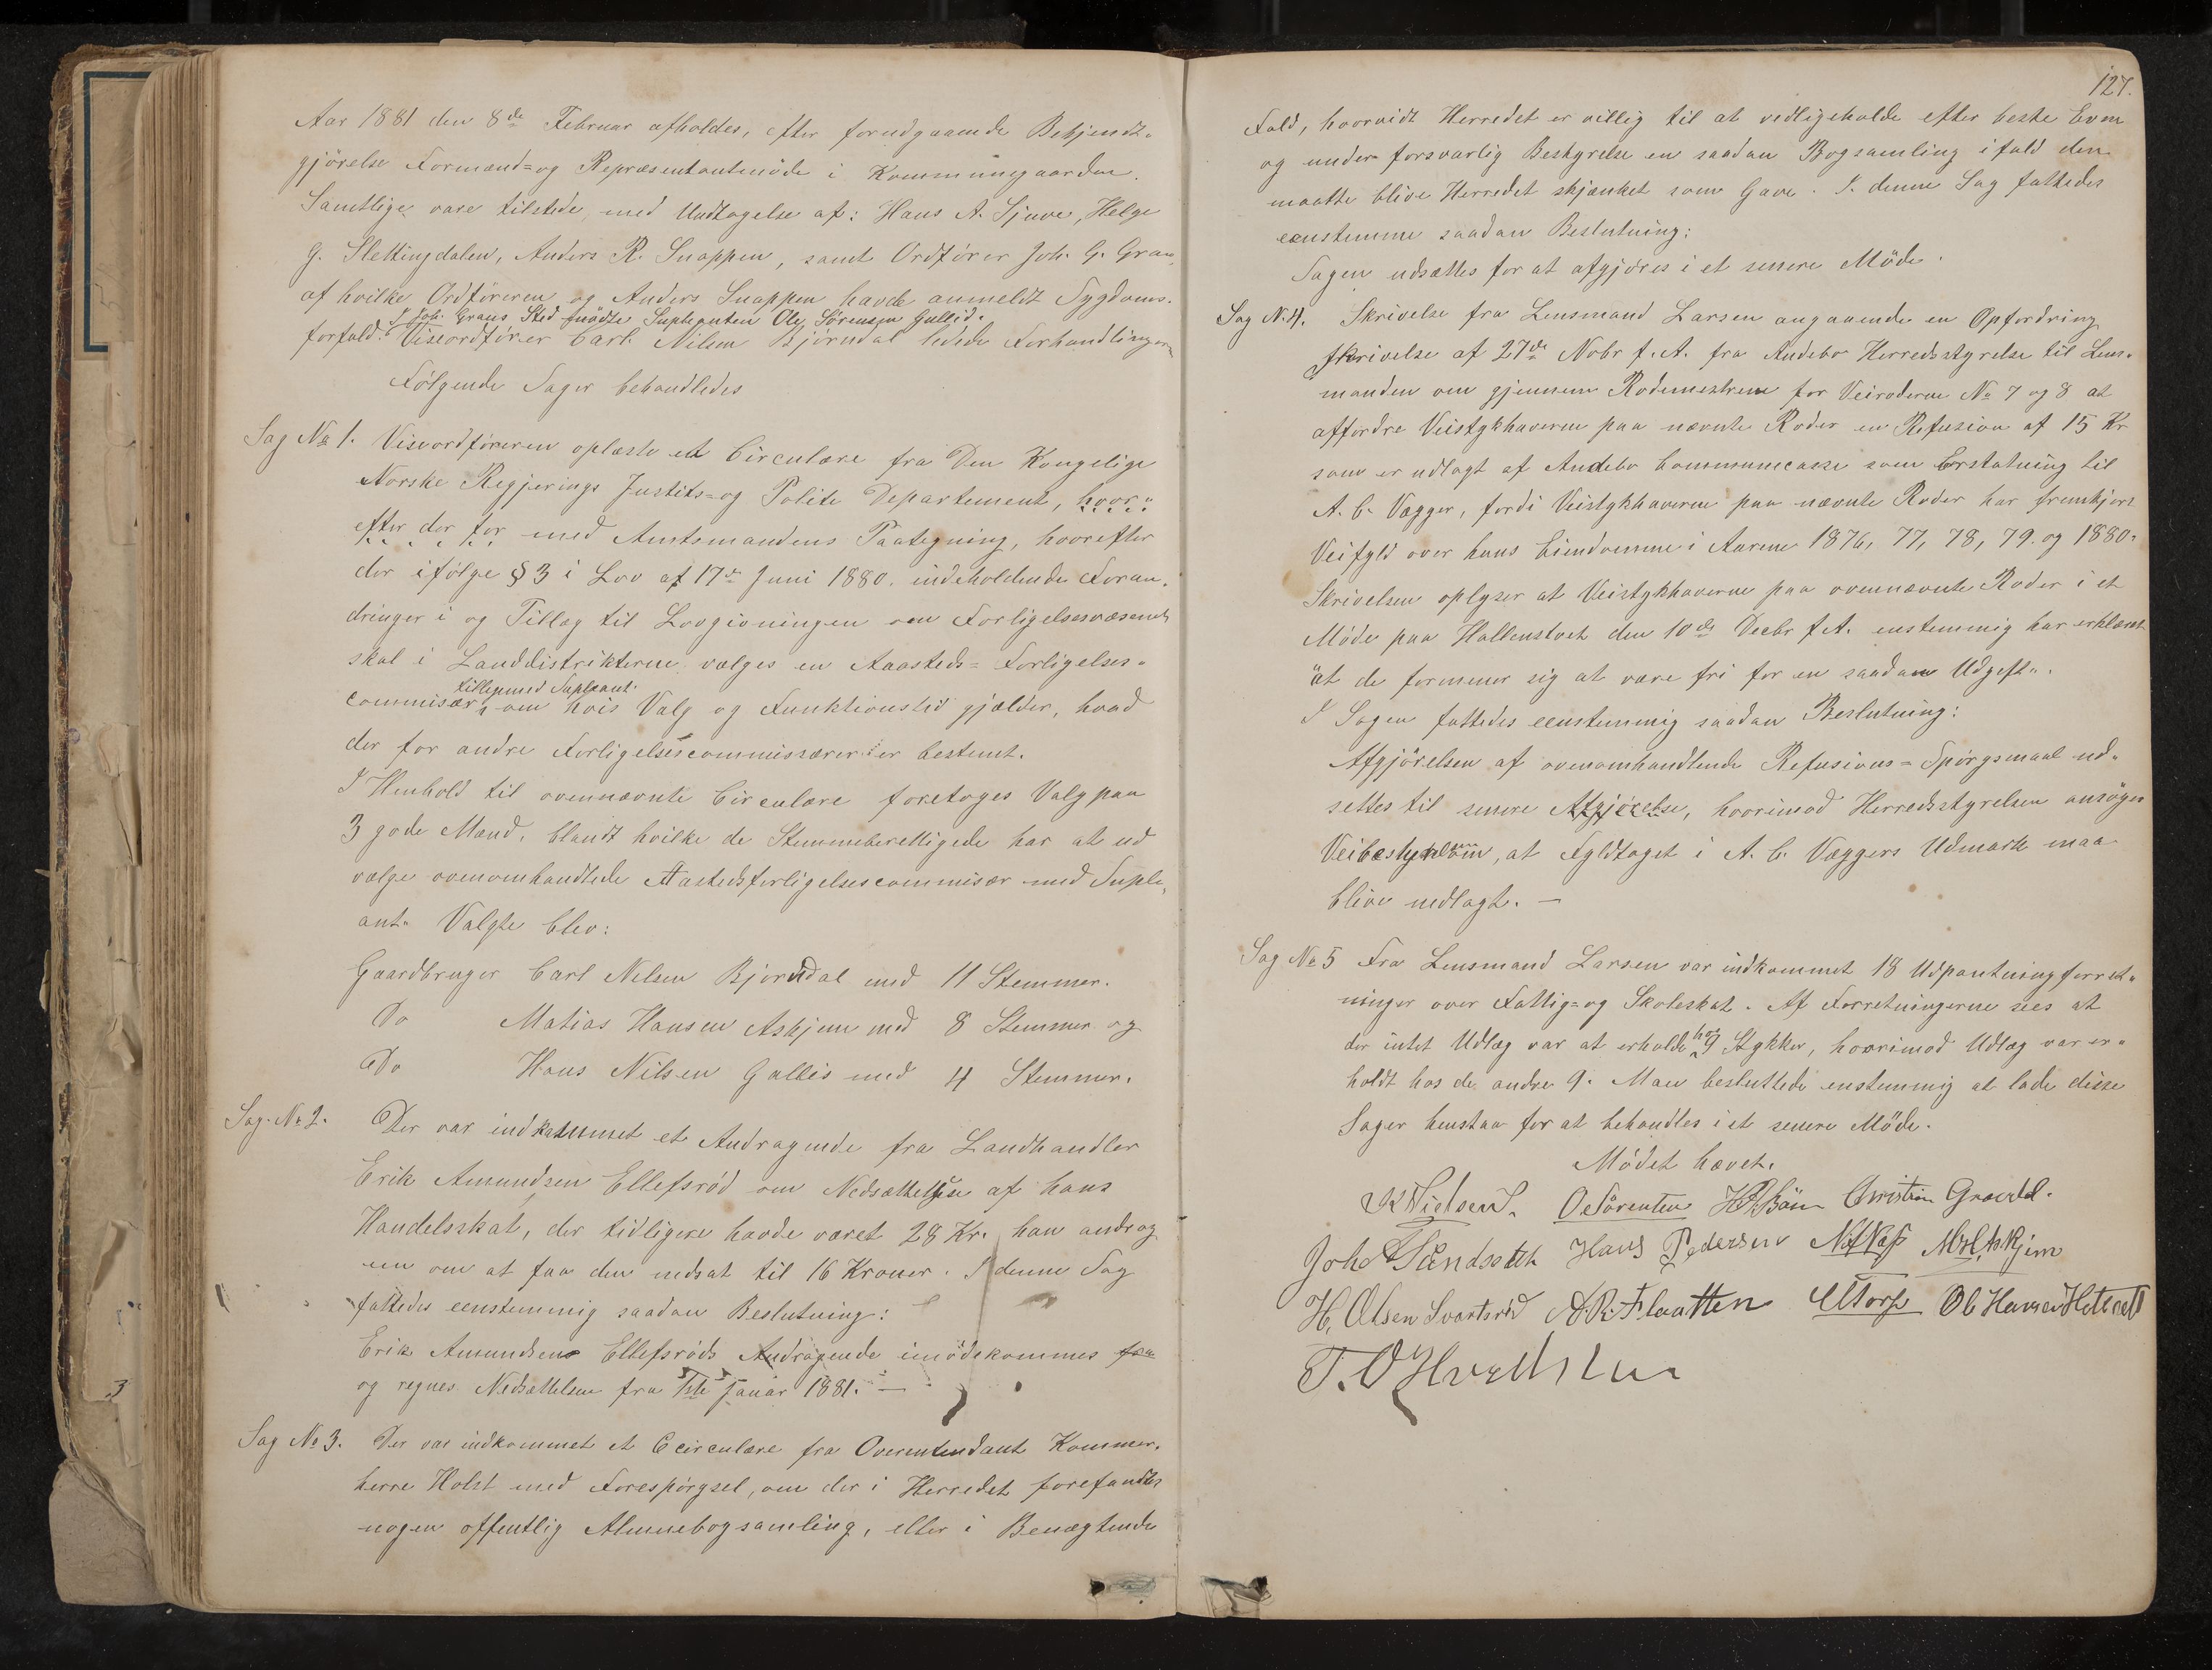 Aar 1881 den 8de Februar afholdes, efter forudgaaende Bekjendt-
gjörelse Formand= og Repræsentantmöde i Kommunegaarden.
Samtlige vare tilstede, med Undtagelse af: Hans A. Sjuve, Helge
G. Slettingdalen, Anders R. Snappen, samt Ordförer Joh. G. Gran,
af hvilke Ordföreren og Anders Snappen havde anmeldt Sygdoms-
I Joh. Grans Sted mödte Supleanten Ole Sörensen Gallis.
forfald. Viseordförer Carl Nilsen Björndal ledede Forhandlingerne
Fölgende Sager behandledes
Sag No 1. Viseordföreren oplæste et Circulære fra Den Kongelige
Norske Regjerings Justits= og Politi Departement, hvor-
efter der for med Amtsmandens Paategning, hvorefter
der ifölge § 3 i Lov af 17de Juni 1880. indeholdende Foran-
dringer i og Tillæg til Lovgivningen om Forligelsesvæsenet
skal i Landdistrikterne vælges en Aasteds= Forligelses-
tilligemed Supleant.
commisær, om hvis Valg og Funktionstid gjælder, hvad
der for andre Forligelsescommissærer er bestemt.
I Henhold til ovennævnte Circulære foretoges Valg paa
3 gode Mænd, blandt hvilke de Stemmeberettigede har at ud
vælge ovenomhandlede Aastedsforligelsescommisær med Suple-
ant. Valgte blev:
Gaardbruger Carl Nelsen Bjorndal med 11 Stemmer.
Do Matias Hansen Askjem med 8 Stemmer og
Do Hans Nilsen Gallis med 4 Stemmer.
Sag. No 2. Der var indkommet et Andragende fra Landhandler
Erik Amundsen Ellefsröd om Nedsættelse af hans
Handelsskat, der tidligere havde været 28 Kr. han androg
nu om at faa den nedsat til 16 Kroner. I denne Sag
fattedes eenstemmig saadan Beslutning:
Erik Amundsens Ellefsröds Andragende imödekommes fra
og regnes Nedsættelsen fra 1ste Januar 1881. —
Sag No 3. Der var indkommet et Ccirculære fra Overintendant Kammer-
herre Holst med Forespörgsel, om der i Herredet forefandtes
nogen offentlig Almuebogsamling, eller i Benægtende
127.
Fald, hvorvidt Herredet er villig til at vedligeholde efter beste Evne
og under forsvarlig Bestyrelse en saadan Bogsamling ifald den
maatte blive Herredet skjænket som Gave. I denne Sag fattedes
eenstemme saadan Beslutning:
Sagen udsættes for at afgjöres i et senere Möde.
Sag No 4. Skrivelse fra Lensmand Larsen angaaende en Opfordring
skrivelse af 27de Nobr f. A. fra Andebo Herredsstyrelse til Lens-
manden om gjennem Rodemestrene for Veiroderne No 7 og 8 at
affordre Veistykhaverne paa nævnte Roder en Refusion af 15 Kr
som er udlagt af Andebo Communecasse som Erstatning til
A. C. Vægger, fordi Veistykhaverne paa nævnte Roder har fremkjört
Veifyld over hans Eiendomme i Aarene 1876, 77, 78, 79. og 1880.
Skrivelsen oplyser at Veistykhaverne paa ovennævnte Roder i et
Möde paa Hallenstvet den 10de Decbr f. A. enstemmig har erklæret
"at de formener sig at være fri for en saadan Udgift".
I Sagen fattedes eenstemmig saadan Beslutning:
Afgjörelsen af ovenomhandlende Refusions= Spörgsmaal ud-
settes til senere Afgjörelse, hvorimod Herredsstyrelsen ansöger
Veibestyrelsen, at Fyldtaget i A. C. Væggers Udmark maa
blive nedlagt. —
Sag No 5 Fra Lensmand Larsen var indkommet 18 Udpantningsforret-
ninger over Fattig= og Skoleskat. Af Forretningerne sees at
der intet Udlæg var at erholde hos 9 Stykker, hvorimod Udlæg var er-
holdt hos de andre 9. Man besluttede enstemmig at lade disse
Sager henstaa for at behandles i et senere Möde.
Mödet hævet.
Nielsen O Sörensen Christian Graverdal.
Joh A Sundset Hans Pedersen Askjem
H. Olsen Svartsröd A. R. Flaatten Torp Ol Hansen
T. O